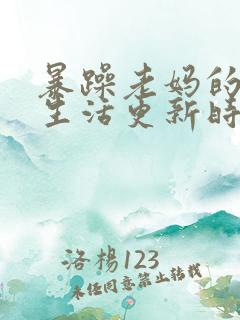 暴躁老妈的
生活更新时
洛杨123
未经同意禁止转载